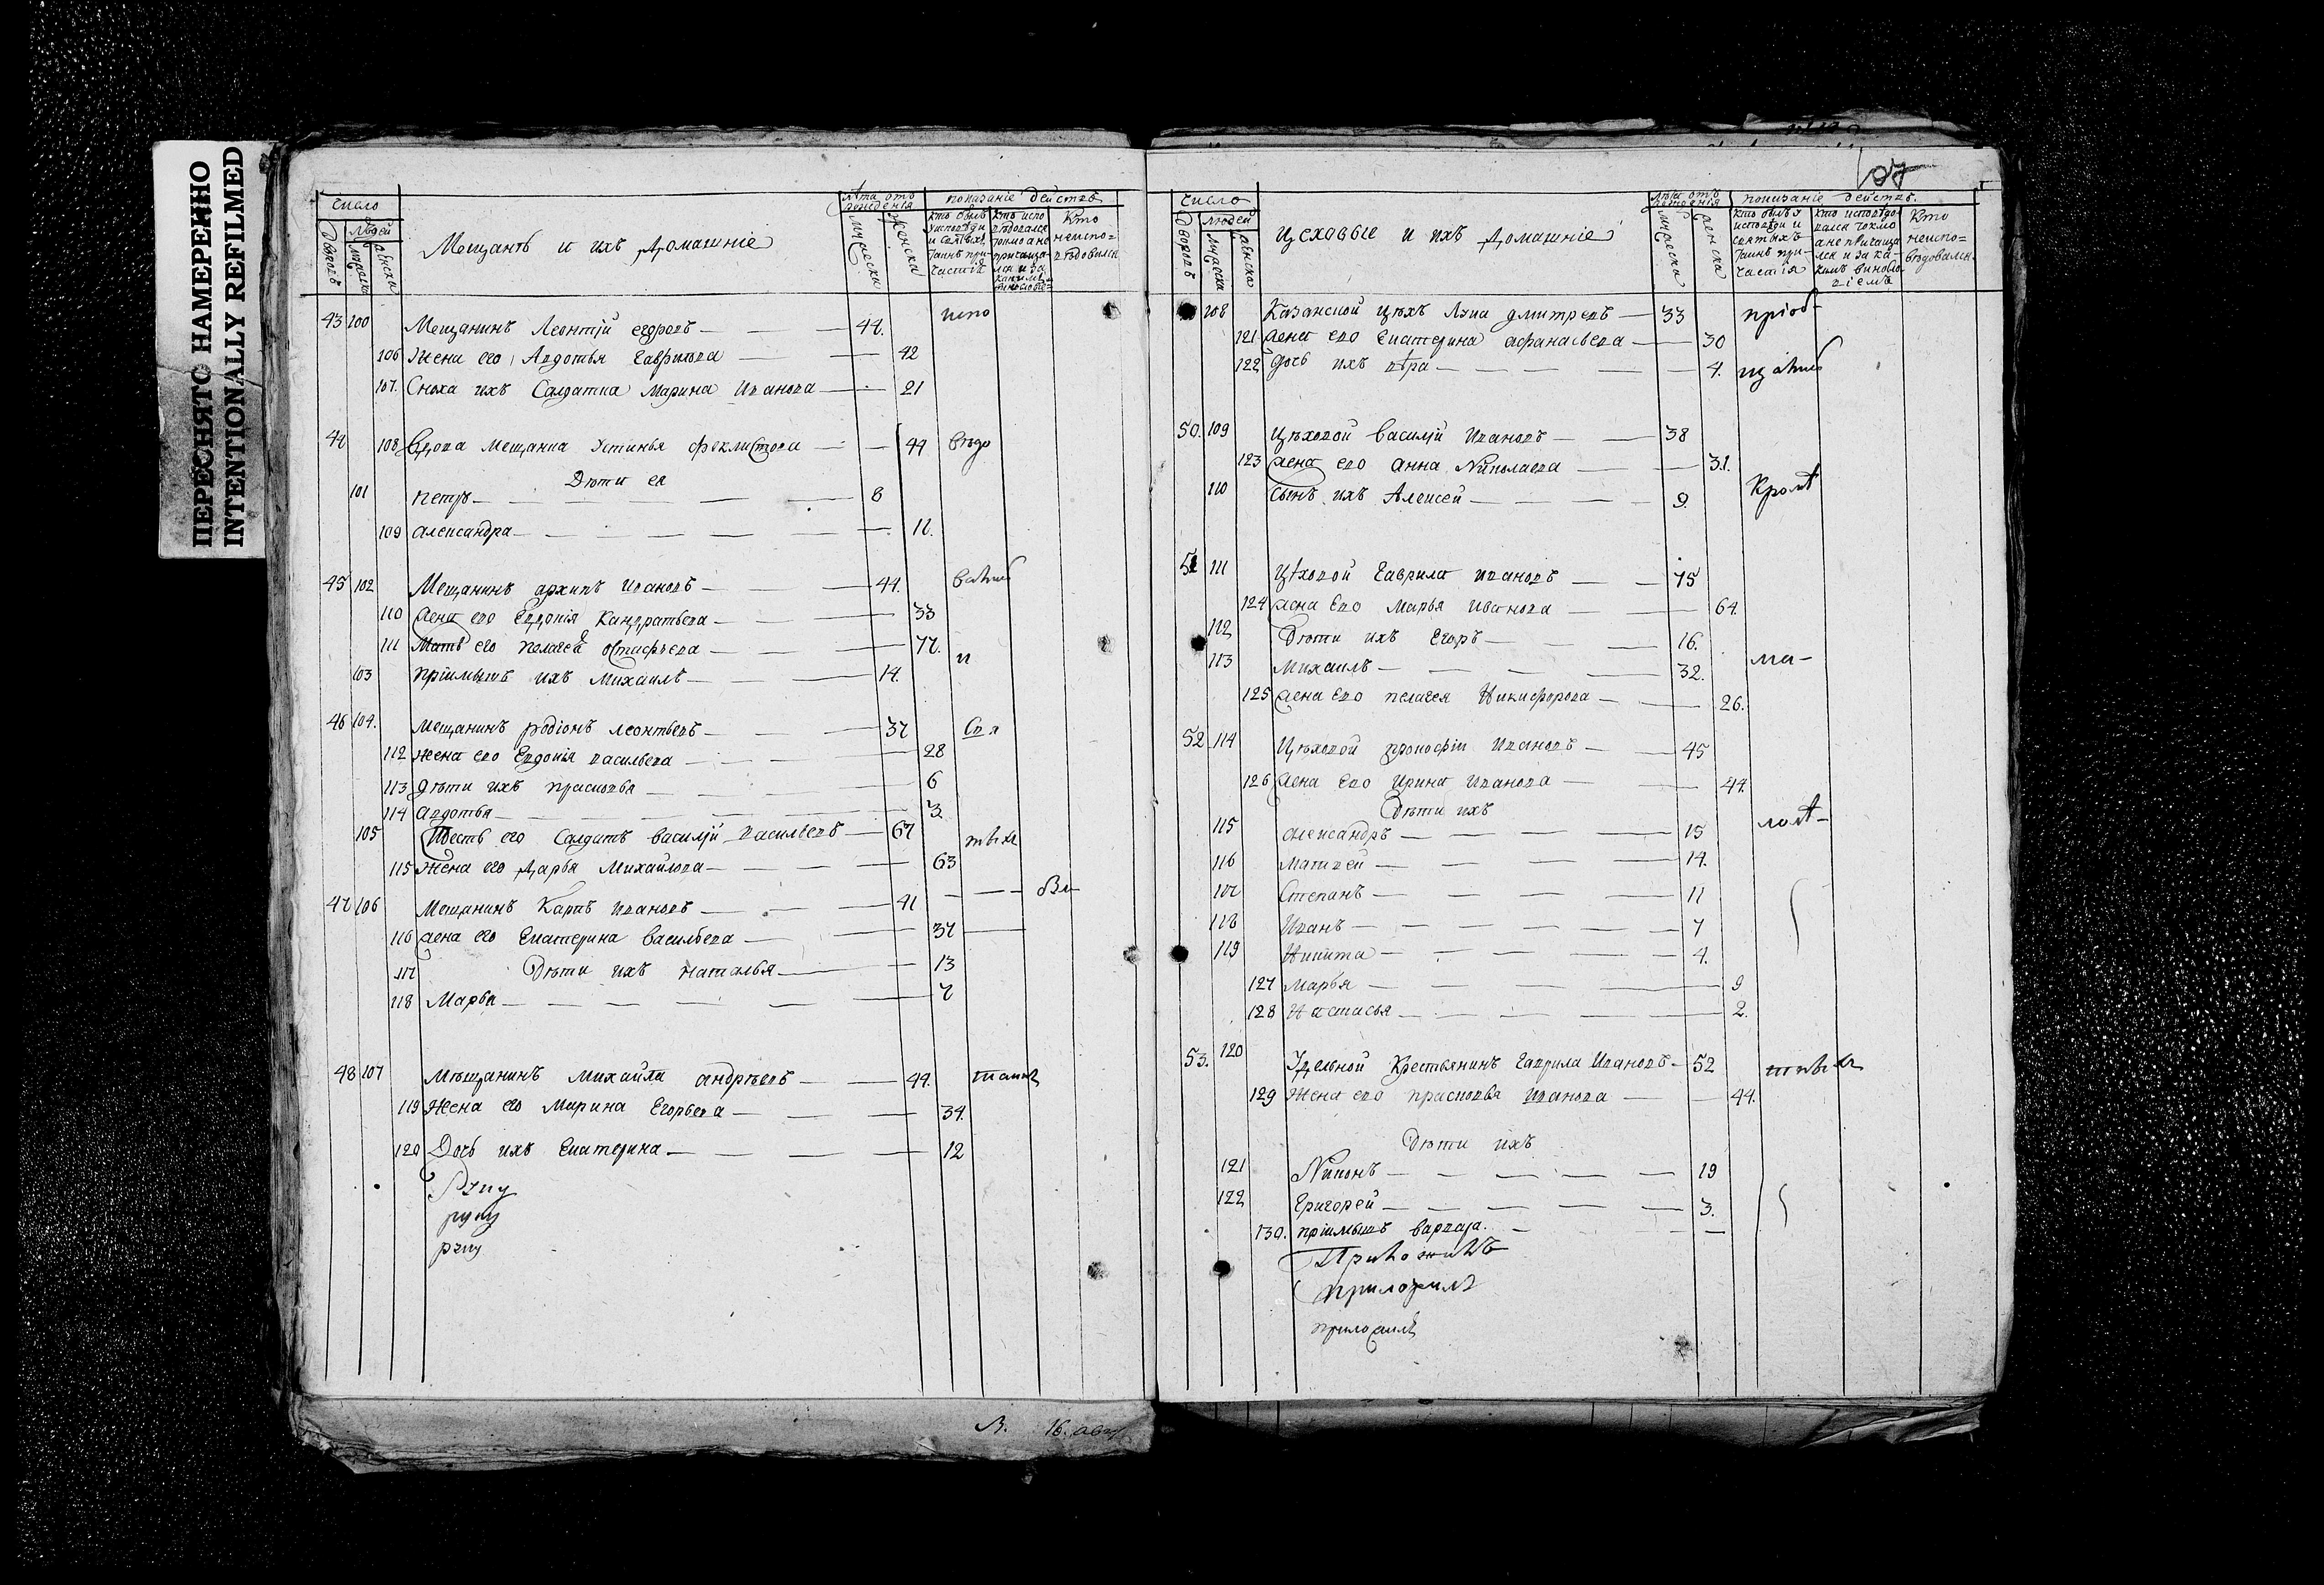 ПЕРЕСНЯТО НАМЕРЕННО
INTENTIONALLY REFILMED
число
людей
Дворовъ
мужеска
женска
Мещанѣ и ихъ домашніе
лѣта отъ рожденія
мужеска
женска
показаніе действъ
кто былъ у исповѣди и святыхъ таинъ причастія
Кто
неиспо=
вѣдовался
43 100 Мещанинъ Леонтій егоровъ — 44.
испо
106 Жена его Авдотья Гаврилова — 42
107. Сноха ихъ Салдатка Марина Иванова — 21
44 108 Вдова мещанка Устинья феклистова — 44
вѣдо
Дѣти ея
101 петръ — 8
109 александра — 11.
45 102 Мещанинъ архипъ Ивановъ — 44.
110 жена его Евдокія Кандратьева — 33
111 Мать его пелагея остафьева — 77.
и
103 пріимышъ ихъ Михаилъ — 14.
46 104. мещанинъ родіонъ леонтьевъ — 37
свя
112 жена его Евдокія васильева — 28
113 дѣти ихъ прасковья — 6
114 авдотья — 3.
105 Тесть его Салдатъ василій васильевъ — 67
тыхъ
115 жена его дарья Михайлова — 63
47 106 Мещанинъ Карпъ Ивановъ — 41
116 жена его Екатерина васильева — 37
117 Дѣти ихъ наталья — 13
118 Марья — 7
48 107 Мѣщанинъ Михайла андрѣевъ — 44.
таинъ
119 Жена его Марина Егорьева — 34.
120 Дочь ихъ Екатерина — 12
руку
руку
руку
16. авг
число
людей
Дворовъ
мужеска
женска
цеховые и ихъ домашніе
лѣта отъ рожденія
мужеска
женска
показаніе действъ.
кто былъ у
исповѣди и
святыхъ
таинъ при-
частія
кто исповѣдо
вался токмо
а не причаща
лся и за ка-
кимъ виносло
віемъ
Кто
неиспо=
вѣдовался.
108 Казанской цѣхъ Лука дмитревъ — 33
пріоб-
121 жена его Екатерина афанасьева — 30
122 дочь ихъ вѣра — 4.
50. 109 Цѣховой василій Ивановъ — 38
123 жена его анна Николаева — 31.
110 сынъ ихъ Алексей — 9.
кромѣ
51 111 Цѣховой Гаврила ивановъ — 75
124 жена его марья ивановa — 64.
112 Дѣти ихъ Егоръ — 16.
113 Михаилъ — 32.
ма-
125 жена его пелагея Никифорова — 26.
52 114 Цѣховой прокофіи Ивановъ — 45
126 жена его ирина Иванова — 44.
Дѣти ихъ
115 александръ — 15
лолѣ-
116 матвей — 14.
107 Степанъ — 11
118 Иванъ — 7
119 Никита — 4.
127 марья — 9
128 Настасья — 2.
53. 120 Удельной Крестьянинъ гаврила Ивановъ — 52
тныхъ
129 жена его прасковья Иванова — 44.
Дѣти ихъ
121 Никонъ — 19
122 григорей — 3.
130. пріимышъ варвара. —
Приложилъ
приложилъ
приложилъ